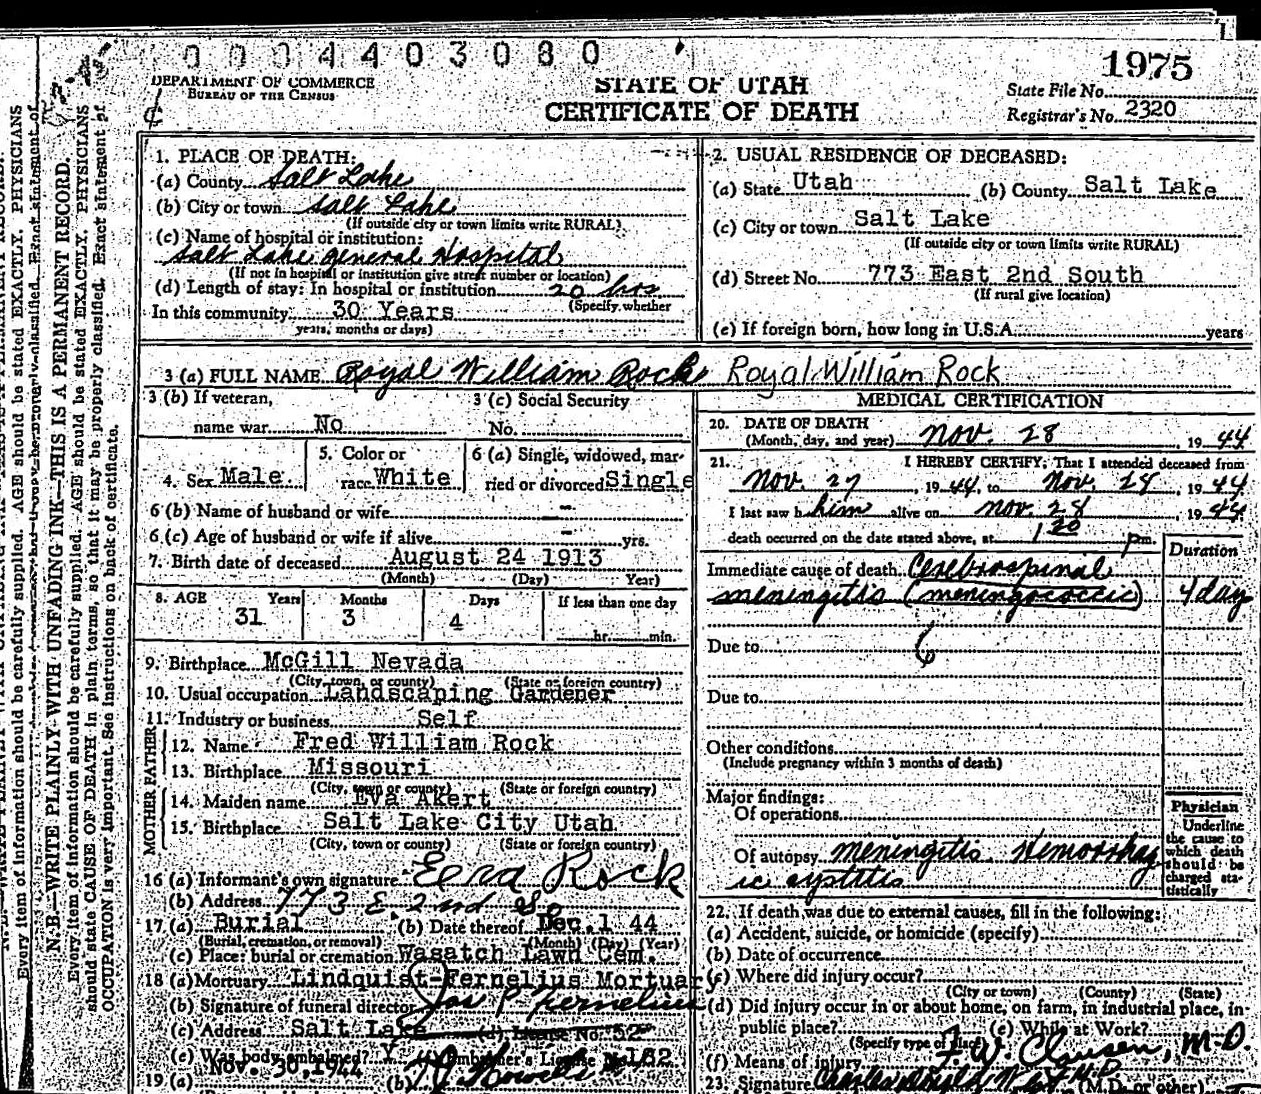 0 0 0 4 4 0 3 0 8 0
1975
DEPARTMENT OF COMMERCE
BUREAU OF THE CENSUS
STATE OF UTAH
CERTIFICATE OF DEATH
State File No.
Registrar's No. 2320
N. B.—WRITE PLAINLY WITH UNFADING INK—THIS IS A PERMANENT RECORD.
Every item of information should be carefully supplied. AGE should be stated EXACTLY. PHYSICIANS
should state CAUSE OF DEATH in plain terms, so that it may be properly classified. Exact statement of
OCCUPATION is very important. See instructions on back of certificate.
1. PLACE OF DEATH:
(a) County Salt Lake
(b) City or town Salt Lake
(If outside city or town limits write RURAL)
(c) Name of hospital or institution:
Salt Lake general Hospital
(If not in hospital or institution give street number or location)
(d) Length of stay: In hospital or institution 20 hrs
(Specify whether
In this community 30 Years
years, months or days)
2. USUAL RESIDENCE OF DECEASED:
(a) State Utah (b) County Salt Lake
(c) City or town Salt Lake
(If outside city or town limits write RURAL)
(d) Street No. 773 East 2nd South
(If rural give location)
(e) If foreign born, how long in U.S.A. years
3 (a) FULL NAME Royal William Rock Royal William Rock
3 (b) If veteran, name war No
3 (c) Social Security No.
4. Sex Male
5. Color or race White
6 (a) Single, widowed, married or divorced Single
6 (b) Name of husband or wife --
6 (c) Age of husband or wife if alive -- yrs.
7. Birth date of deceased August 24 1913
(Month) (Day) Year)
8. AGE Years Months Days If less than one day
31 3 4 hr. min.
9. Birthplace McGill Nevada
(City, town, or county) (State or foreign country)
10. Usual occupation Landscaping Gardener
11. Industry or business Self
FATHER
12. Name Fred William Rock
13. Birthplace Missouri
(City, town or county) (State or foreign country)
MOTHER
14. Maiden name Eva Akert
15. Birthplace Salt Lake City Utah
(City, town or county) (State or foreign country)
16 (a) Informant's own signature Rock
(b) Address 773 E. 2nd So
17 (a) Burial (b) Date thereof Dec. 1 44
(Burial, cremation, or removal) (Month) (Day) (Year)
(c) Place: burial or cremation Wasatch Lawn Cem.
18 (a) Mortuary Lindquist-Fernelius Mortuary
(b) Signature of funeral director Jos P Fernelius
(c) Address Salt Lake (d) License No. 52
(e) Was body embalmed? Embalmer's License No. 182
19 (a) Nov. 30, 1944 (b)
MEDICAL CERTIFICATION
20. DATE OF DEATH
(Month, day, and year) Nov. 28, 1944
21. I HEREBY CERTIFY, That I attended deceased from
Nov. 27, 1944, to Nov. 28, 1944
I last saw him alive on Nov. 28 1944
death occurred on the date stated above, at 1 20 p.m.
Duration
Immediate cause of death Cerebrospinal
meningitis (meningococcic) 4 day
Due to 6
Due to
Other conditions
(Include pregnancy within 3 months of death)
Major findings:
Of operations
Of autopsy meningitis. Hemorrhag
ic cystitis
Physician
Underline
the cause to
which death
should be
charged statistically
22. If death was due to external causes, fill in the following:
(a) Accident, suicide, or homicide (specify)
(b) Date of occurrence
(c) Where did injury occur?
(City or town) (County) (State)
(d) Did injury occur in or about home, on farm, in industrial place, in
public place? (e) While at Work?
(Specify type of place)
(f) Means of injury F. W. Clausen, M-D.
23. Signature Charles (M.D. or other)